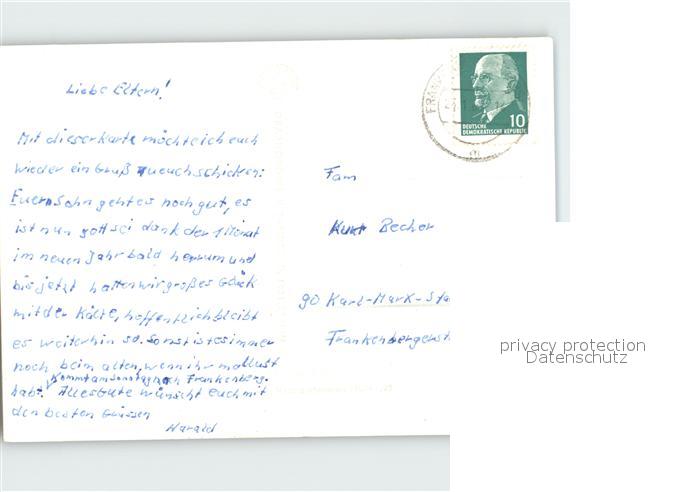 Liebe Eltern!
Mit dieser Karte möchte ich euch
wieder ein Gruß zu euch schicken:
Euern Sohn geht es noch gut, es
ist nun gott sei dank der 1 Monat
im neuen Jahr bald herrum und
bis jetzt hatten wir großes Glück
mit der Kälte, hoffentlich bleibt
es weiterhin so. Sonst ist es immer
noch beim alten, wenn ihr mal lust
kommt am sonntag nach Frankenberg.
habt, Alles Gute wünscht euch mit
den besten Grüssen
Harald
FRANK
10
DEUTSCHE
DEMOKRATISCHE REPUBLIK
Fam
Kurt Becher
90 Karl-Marx-Sta
Frankenbergerst
privacy protection
Datenschutz